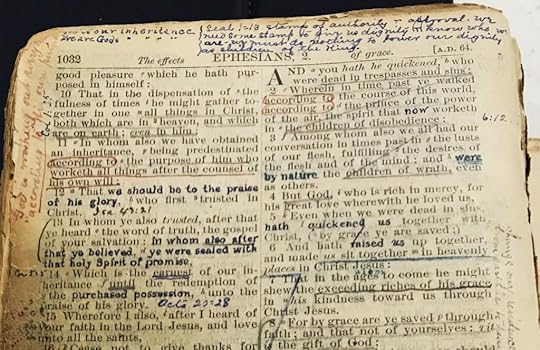 God is our inheritance { Seal 1:13 stamp of authority & approval. we
We are God's " " { need some stamp to give us dignity to know who we
are. we must do nothing to lower our dignity
as children of the King.
1032 The effects EPHESIANS, 2. of grace. [A.D. 64.
good pleasure which he hath pur-
posed in himself:
10 That in the dispensation of the
fulness of times he might gather to-
gether in one all things in Christ,
both which are in heaven, and which
are on earth; even in him:
11 In whom also we have obtained
an inheritance, being predestinated
according to the purpose of him who
worketh all things after the counsel of
his own will:
12 That we should be to the praise
of his glory, who first trusted in
Christ. Isa 43:21
13 In whom ye also trusted, after that
ye heard the word of truth, the gospel
of your salvation: in whom also after
that ye believed, ye were sealed with
that holy Spirit of promise,
14 Which is the earnest of our in-
heritance until the redemption of
the purchased possession, unto the
praise of his glory. Acts 20-28
15 Wherefore I also, after I heard of
your faith in the Lord Jesus, and love
unto all the saints,
16 Cease not to give thanks for
AND you hath he quickened, who
were dead in trespasses and sins;
2 Wherein in time past ye walked
according to the course of this world,
according to the prince of the power
of the air, the spirit that now worketh
in the children of disobedience: 6:12
3 Among whom also we all had our
conversation in times past in the lusts
of our flesh, fulfilling the desires of
the flesh and of the mind; and were
by nature the children of wrath, even
as others.
4 But God, who is rich in mercy, for
his great love wherewith he loved us,
5 Even when we were dead in sins,
hath quickened us together with
Christ, (by grace ye are saved;)
6 And hath raised us up together,
and made us sit together in heavenly
places in Christ Jesus:
7 That in the ages to come he might
shew the exceeding riches of his grace
in his kindness toward us through
Christ Jesus.
8 For by grace are ye saved through
faith; and that not of yourselves: it
is the gift of God: